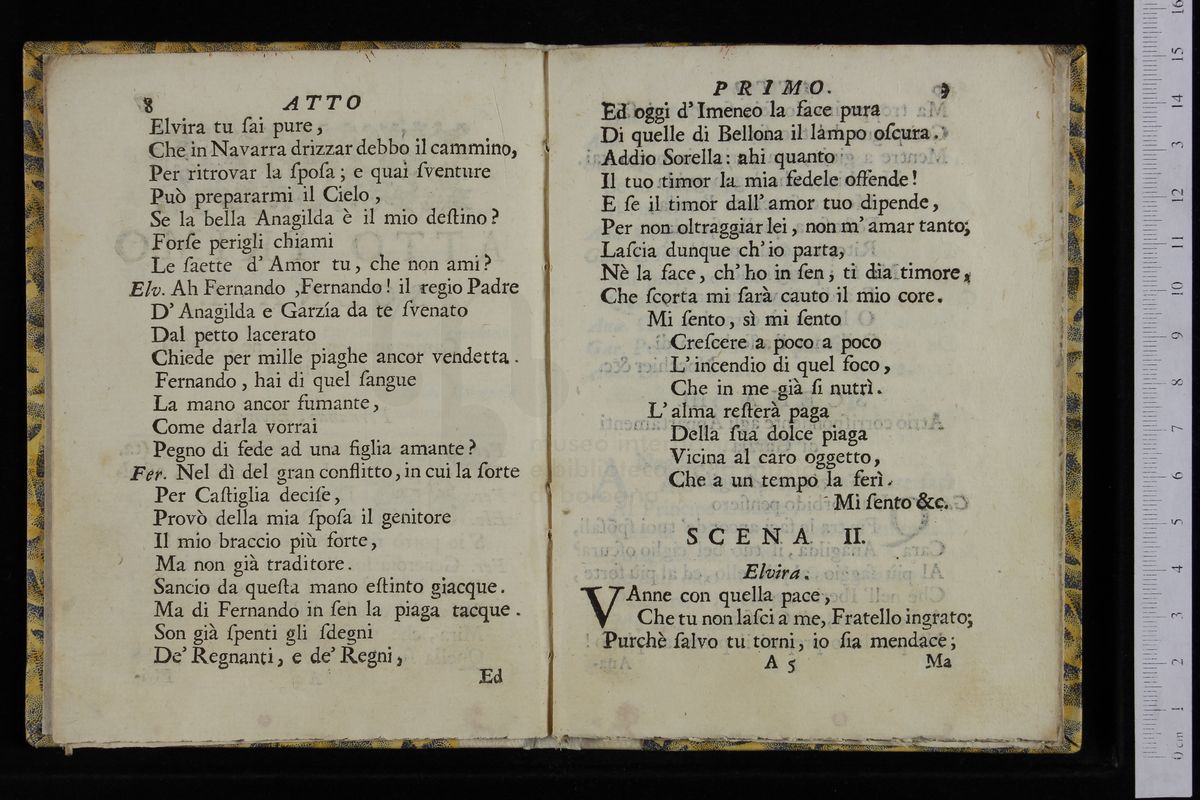 8 ATTO
Elvira tu ſai pure,
Che in Navarra drizzar debbo il cammino,
Per ritrovar la ſpoſa; e quai ſventure
Può prepararmi il Cielo,
Se la bella Anagilda è il mio deſtino?
Forſe perigli chiami
Le ſaette d' Amor tu, che non ami?
Elv. Ah Fernando ,Fernando! il regio Padre
D' Anagilda e Garzía da te ſvenato
Dal petto lacerato
Chiede per mille piaghe ancor vendetta.
Fernando, hai di quel ſangue
La mano ancor fumante,
Come darla vorrai
Pegno di fede ad una figlia amante?
Fer. Nel dì del gran conflitto, in cui la ſorte
Per Caſtiglia deciſe,
Provò della mia ſpoſa il genitore
Il mio braccio più forte,
Ma non già traditore.
Sancio da queſta mano eſtinto giacque.
Ma di Fernando in ſen la piaga tacque.
Son già ſpenti gli ſdegni
De' Regnanti, e de' Regni,
Ed
PRIMO. 9
Ed oggi d' Imeneo la face pura
Di quelle di Bellona il lampo oſcura.
Addio Sorella: ahi quanto
Il tuo timor la mia fedele offende!
E ſe il timor dall' amor tuo dipende,
Per non oltraggiar lei, non m' amar tanto;
Laſcia dunque ch' io parta,
Nè la face, ch' ho in ſen, ti dia timore,
Che ſcorta mi ſarà cauto il mio core.
Mi ſento, sì mi ſento
Creſcere a poco a poco
L' incendio di quel foco,
Che in me già ſi nutrì.
L' alma reſterà paga
Della ſua dolce piaga
Vicina al caro oggetto,
Che a un tempo la ferì.
Mi ſento &c.
SCENA II.
Elvira.
VAnne con quella pace,
Che tu non laſci a me, Fratello ingrato;
Purchè ſalvo tu torni, io ſia mendace;
A 5 Ma